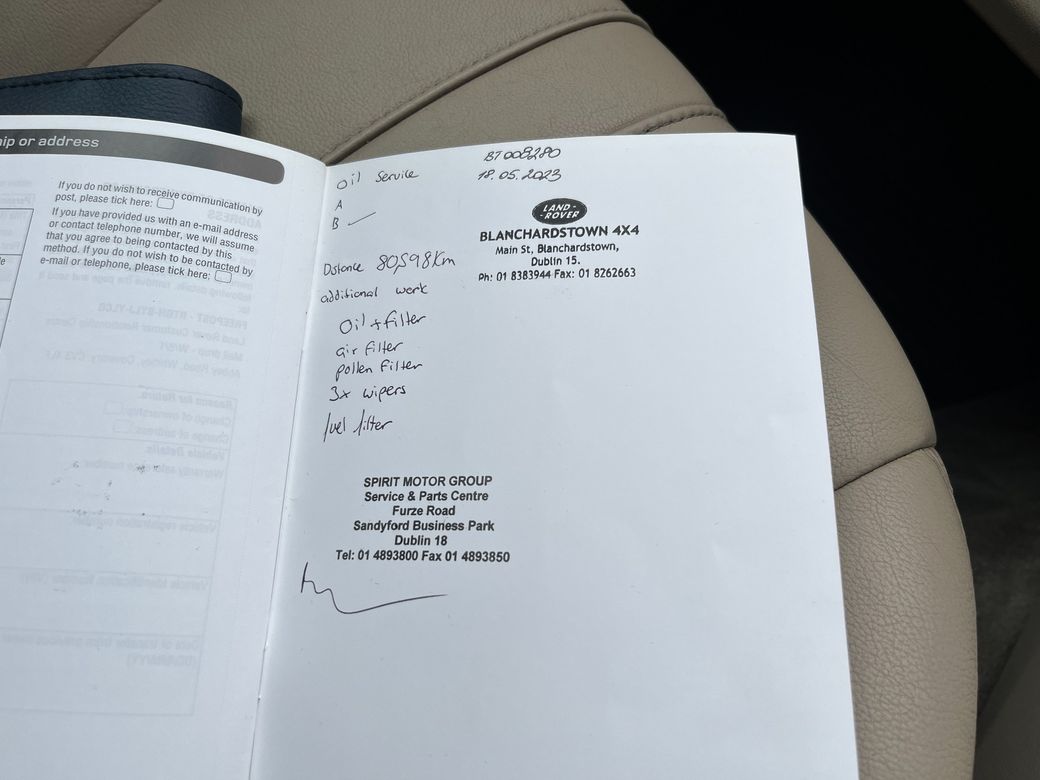 hip or address
If you do not wish to receive communication by
post, please tick here:
If you have provided us with an e-mail address
or contact telephone number, we will assume
that you agree to being contacted by this
method. If you do not wish to be contacted by
e-mail or telephone, please tick here:
BT008280
Oil Service 18.05.2023
A
B
LAND-
-ROVER
BLANCHARDSTOWN 4X4
Main St, Blanchardstown,
Dublin 15.
Ph: 01 8383944 Fax: 01 8262663
Distance 80,598Km
additional work
Oil + filter
air filter
pollen filter
3x wipers
fuel filter
SPIRIT MOTOR GROUP
Service & Parts Centre
Furze Road
Sandyford Business Park
Dublin 18
Tel: 01 4893800 Fax 01 4893850